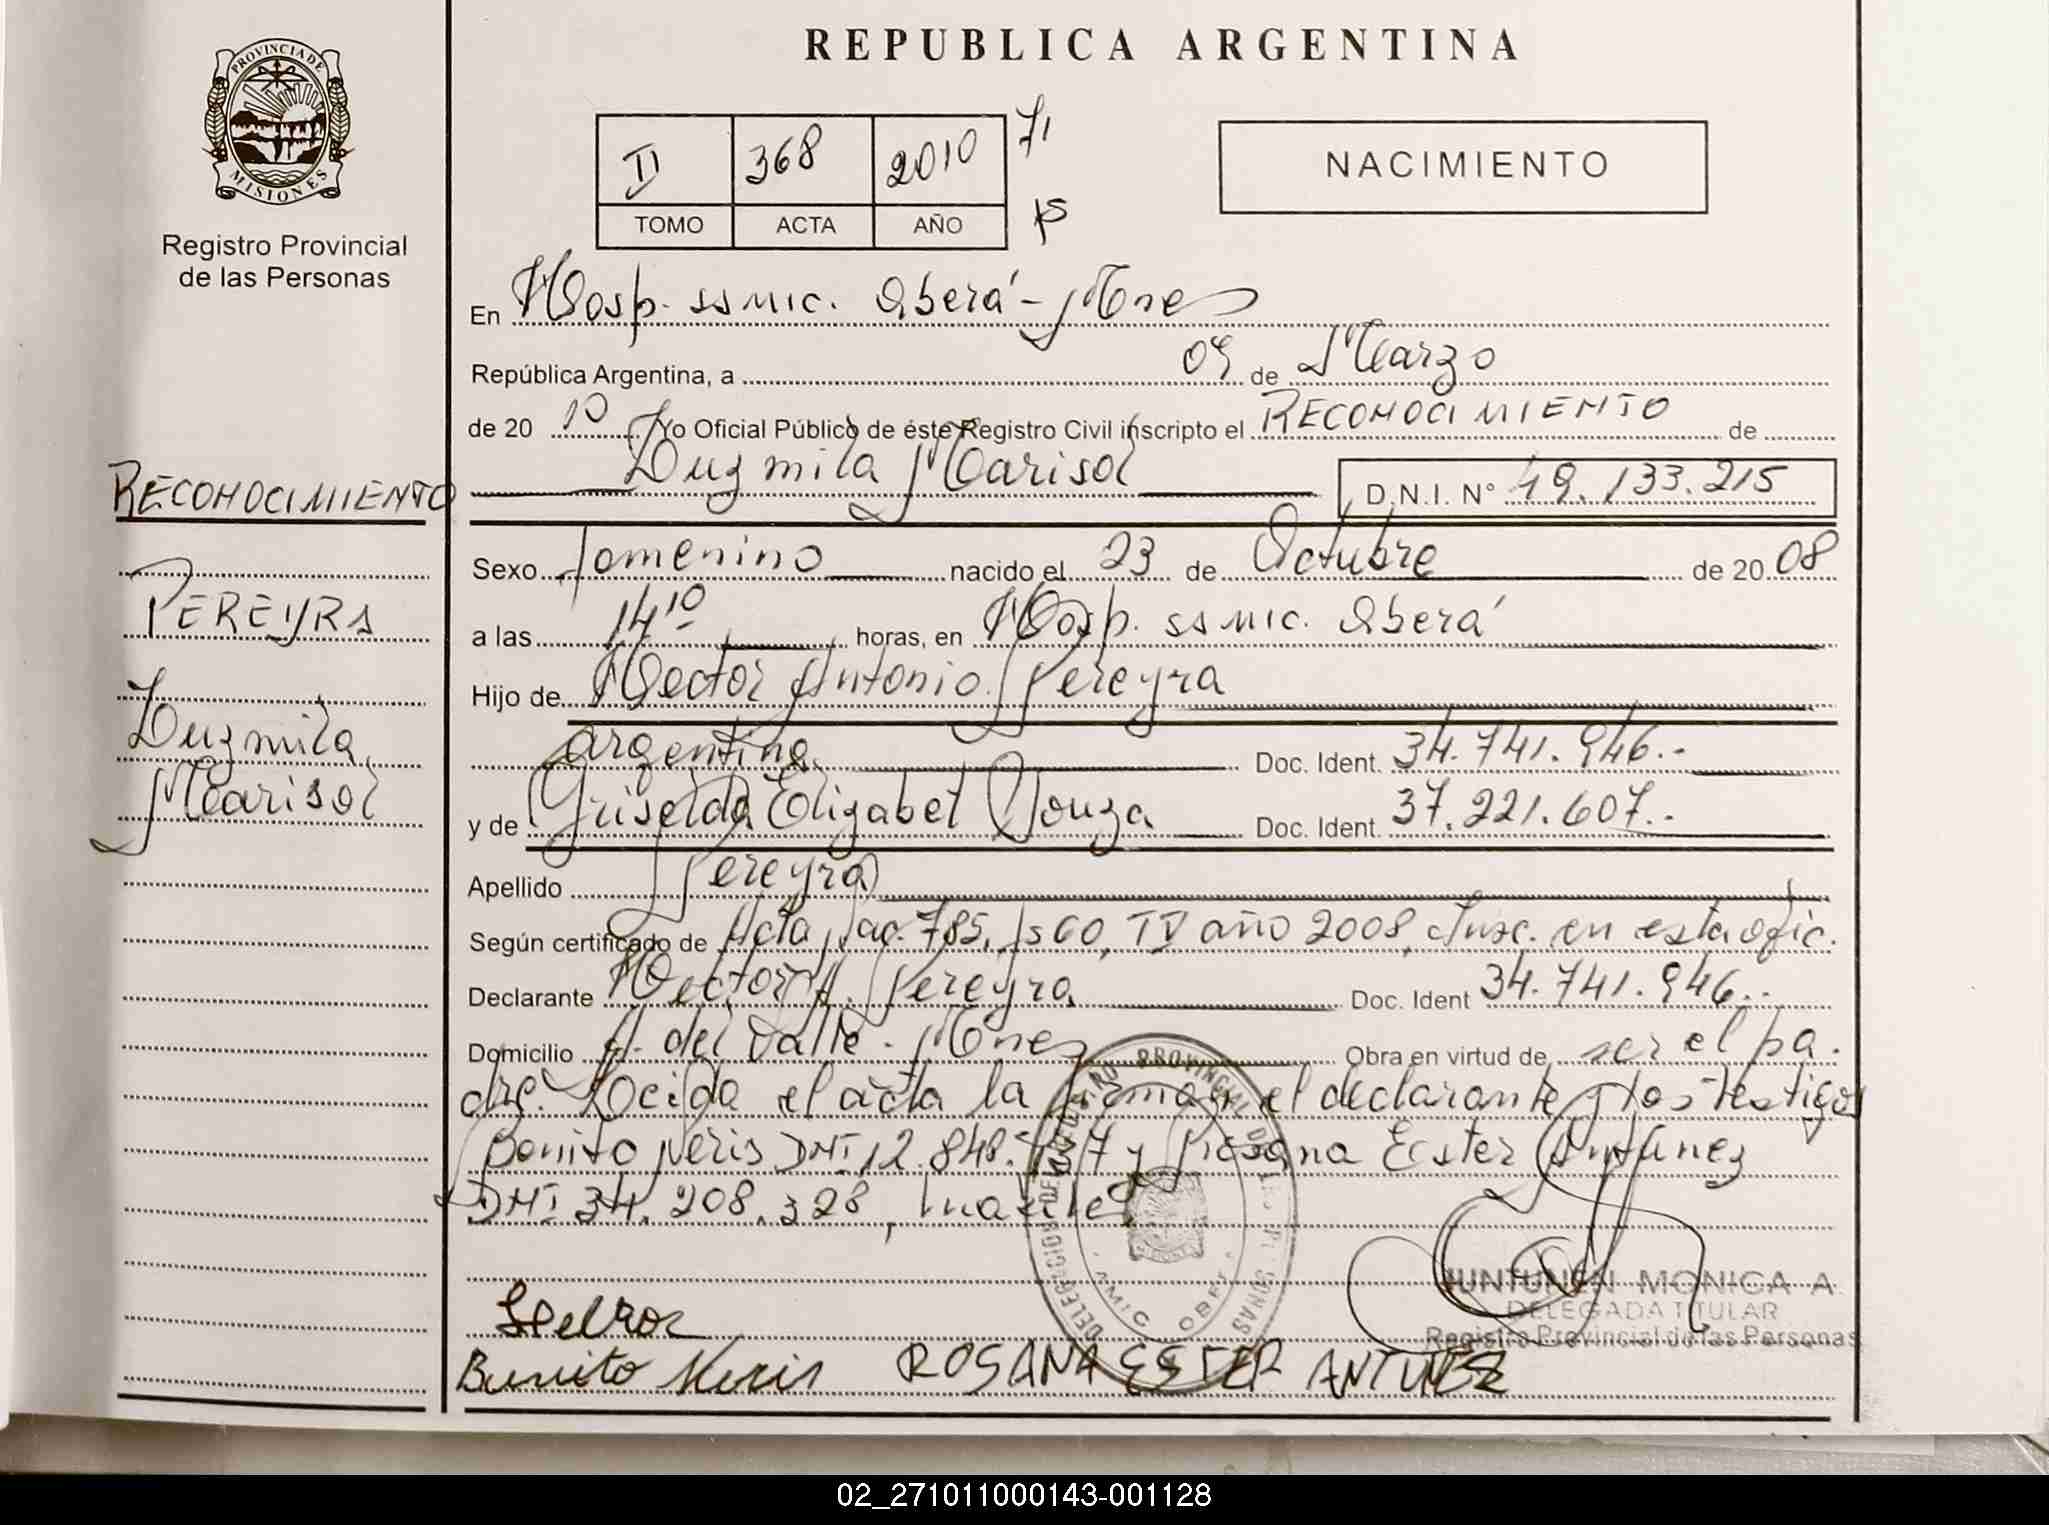 REPUBLICA ARGENTINA
PROVINCIA DE
MISIONES
Registro Provincial
de las Personas
II 368 2010 71
TOMO ACTA AÑO
NACIMIENTO
En Hosp. ssmic. Oberá - Mnes
República Argentina, a 09 de Marzo
de 20 10 Yo Oficial Público de éste Registro Civil inscripto el RECONOCIMIENTO de
Luzmila Marisol D.N.I. N° 49.133.215
RECONOCIMIENTO
PEREYRA
Luzmila
Marisol
Sexo Femenino nacido el 23 de Octubre de 20 08
a las 14 10 horas, en Hosp. ssmic. Oberá
Hijo de Hector Antonio Pereyra
argentina Doc. Ident. 34.741.946.-
y de Griselda Elizabet Souza Doc. Ident. 37.221.607.-
Apellido Pereyra
Según certificado de Acta Nac. 785, Fs 60, TIV año 2008, Insc. en esta ofic.
Declarante Hector A. Pereyra Doc. Ident 34.741.946.-
Domicilio A. del Valle - Mnes Obra en virtud de ser el pa.
dre. Leida el acta la firman el declarante y los testigos
Benito Neris DNI 12.848. y Rosana Ester Antunez
DNI 34.208.328,
JUNTUNEN MONICA A
DELEGADA TITULAR
Registro Provincial de las Personas
Benito Neris ROSANA ESTER ANTUNEZ
02_271011000143-001128